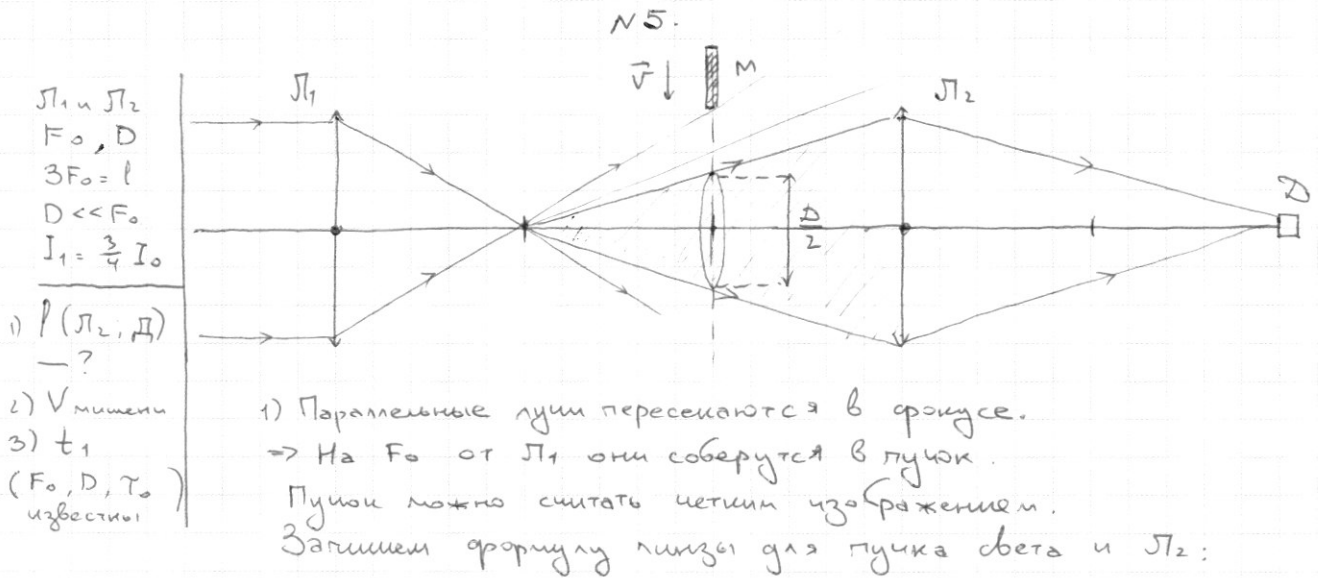 N5.
Л₁ и Л₂
F₀, D
3F₀ = l
D << F₀
I₁ = 3/4 I₀
1) l (Л₂, Д)
— ?
2) V мишени
3) t₁
(F₀, D, τ₀)
известны
Л₁
v⃗ ↓
M
Л₂
D/2
Д
1) Параллельные лучи пересекаются в фокусе.
=> На F₀ от Л₁ они соберутся в пучок.
Пучок можно считать четким изображением.
Запишем формулу линзы для пучка света и Л₂: